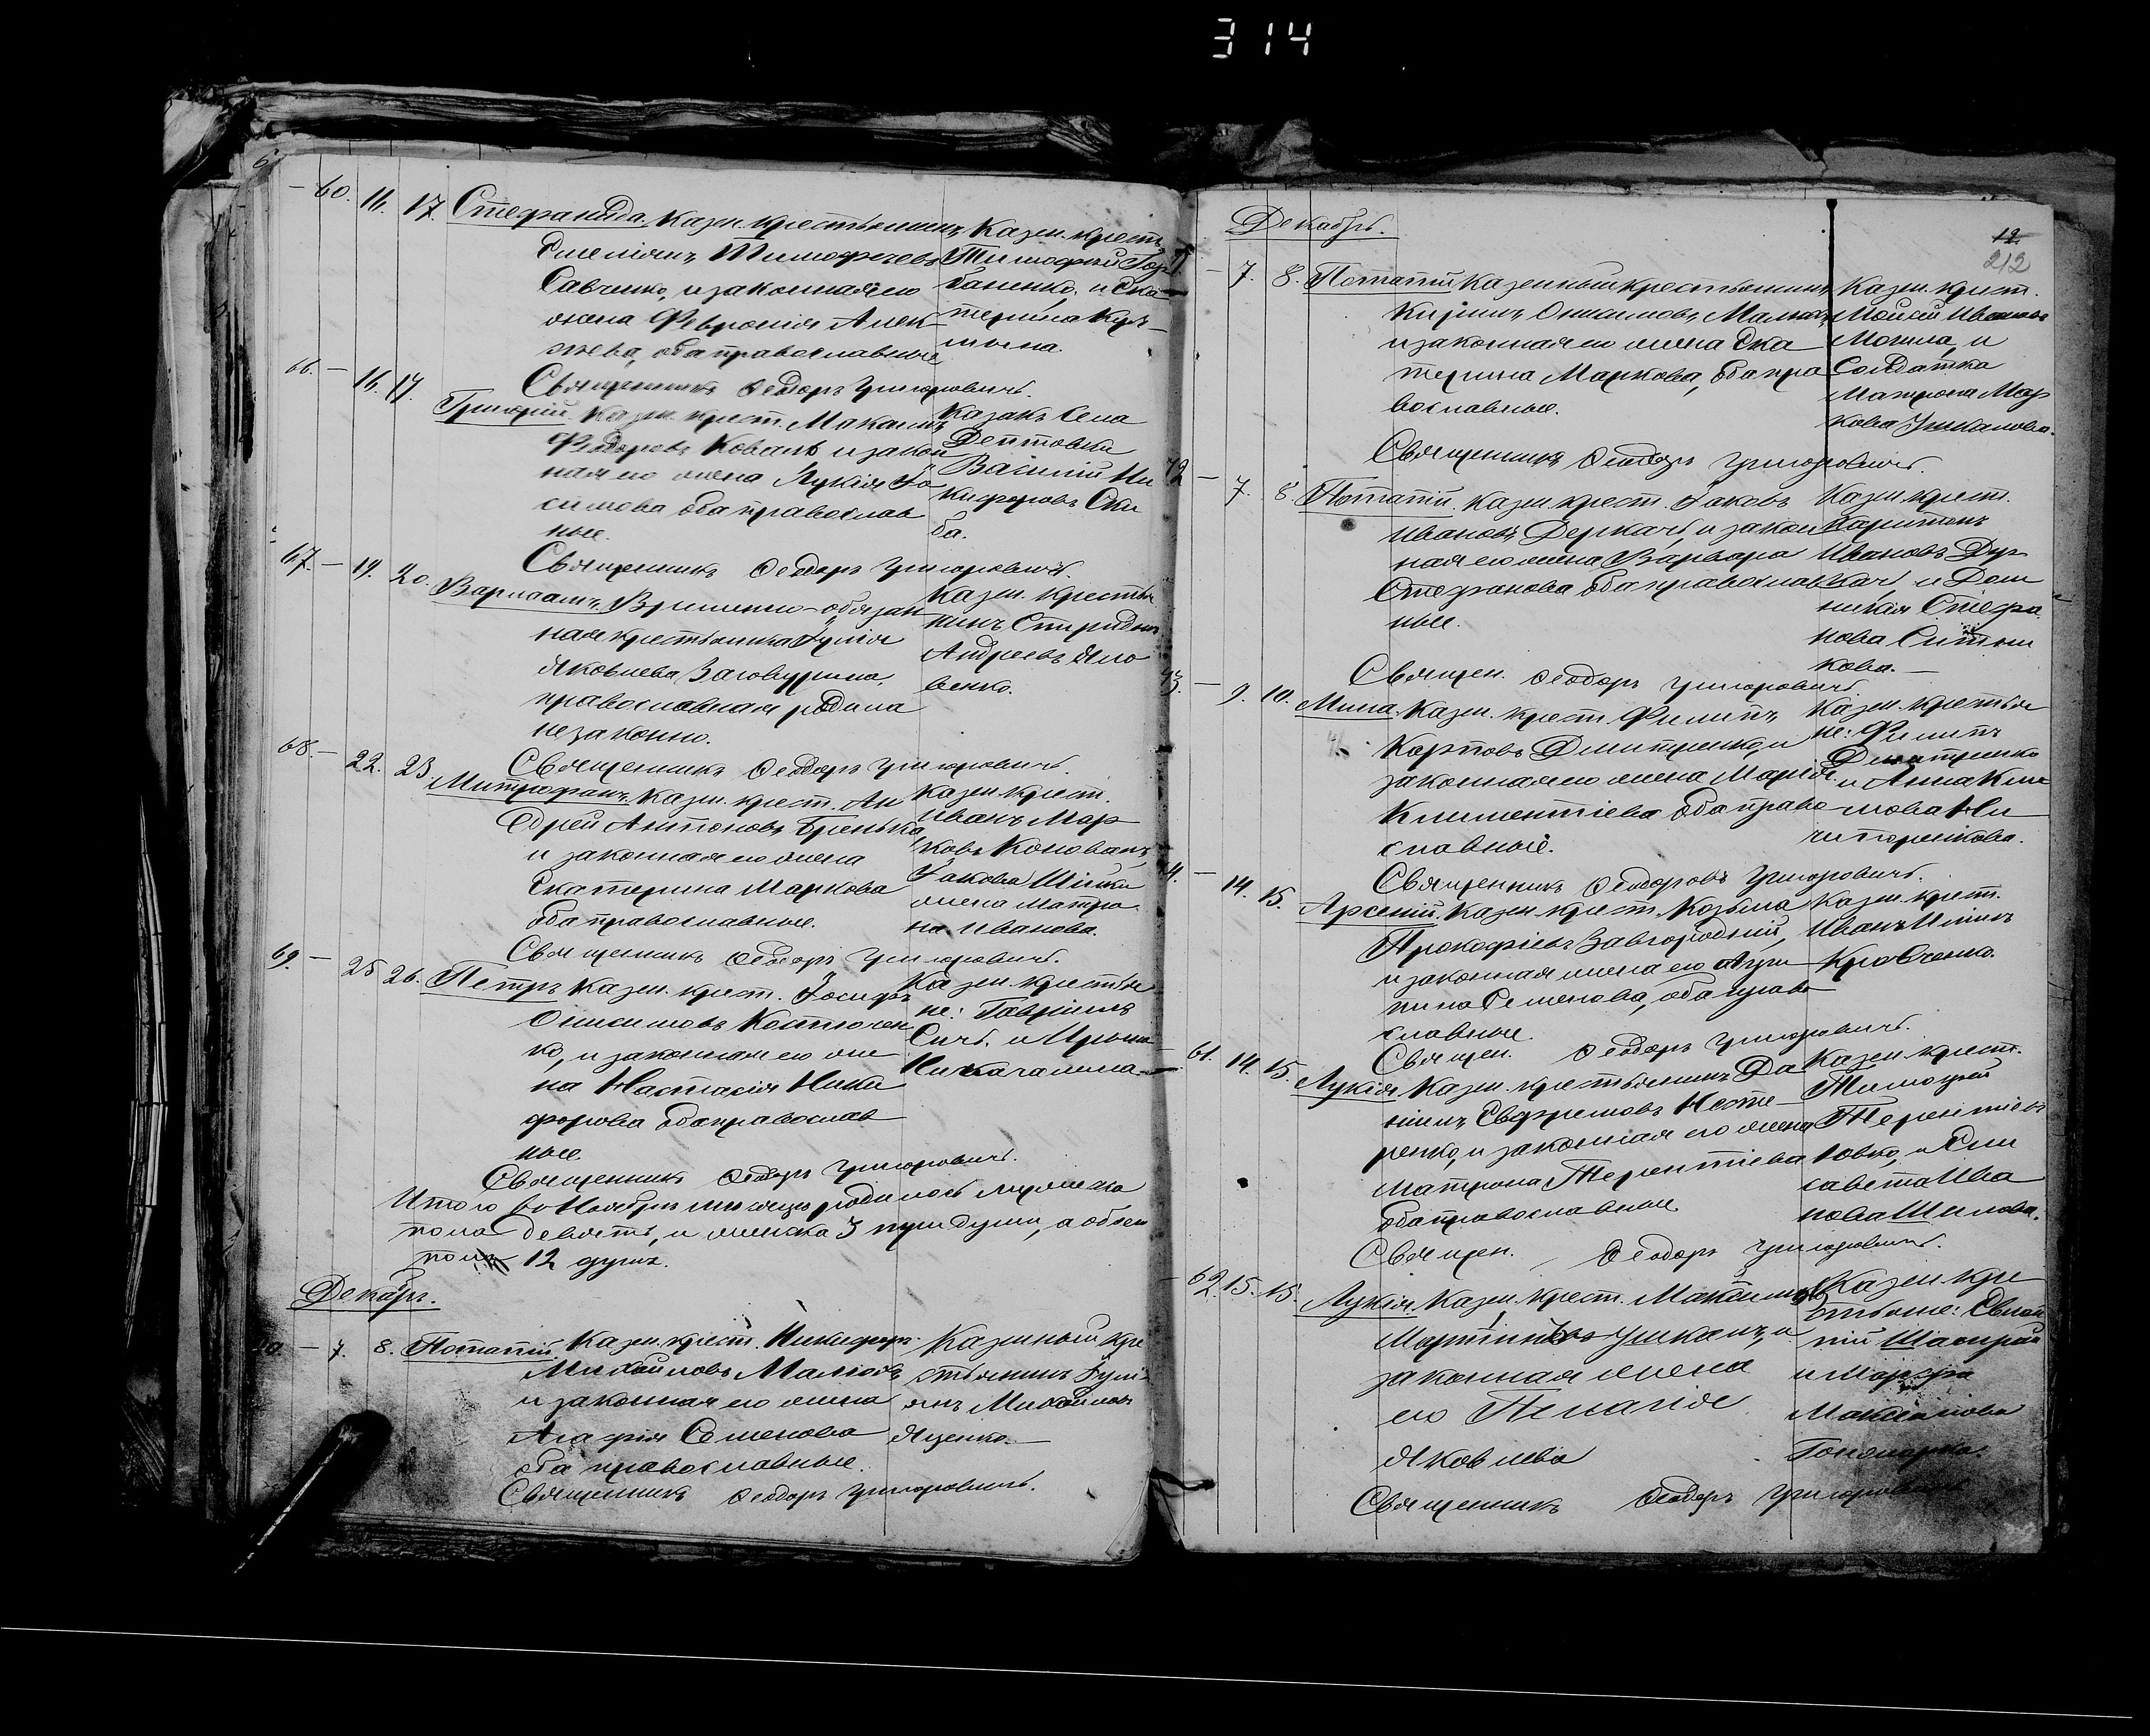 314
– 60. 16. 17. Стефанида. Казен. крестьянинъ
Емеліянъ Тимофеевъ
Савченко, и законная его
жена Феврония Алек
сѣева, оба православные
Казен. крест.
Тимофей Гор
баненко, и Ека
терина
Священникъ Феодоръ Григоровичъ.
66. – 16. 17.
Григорій. Казен. крест. Максимъ
Федоровъ Коваль и закон
ная его жена Лукія Іо
симова оба православ
ные.
Казакъ Села
Дептовки
Василій Ни
кифоровъ Ски
ба.
Священникъ Феодоръ Григоровичъ.
67. – 19. 20. Варлаамъ. Временно-обязан
ная крестьянка Іулія
Яковлева
православная родила
незаконно.
Казен. крестья
нинъ Спиридонъ
Андреевъ Яко
венко.
Священникъ Феодоръ Григоровичъ.
68. – 22. 23. Митрофанъ. Казен. крест. Ан
дрей Антоновъ Гренька
и законная его жена
Екатерина Маркова
оба православные.
Казен. крест.
Иванъ Мар
ковъ Коновалъ
Іакова
жена Матро
на Иванова.
Священникъ Феодоръ Григоровичъ.
69. – 25 26. Петръ Казен. крест. Іосифъ
Онисимовъ Костючен
ко, и законная его же
на Настасія Ники
форова оба православ
ные.
Казен. крестья
не: Гавріилъ
Сичъ. и Ирина
Священникъ Феодоръ Григоровичъ.
Итого во Ноябрѣ мѣсяцѣ родилось мужеска
пола девять, и женска 3 три души, а обоего
пола 12 душъ.
Декабрь.
– 7. 8. Потапій. Казен. крест. Никифоръ
Михайловъ Малюкъ
и законная его жена
Агафія Семенова
оба православные.
Казенный кре
стьянинъ Іулі
янъ Михайловъ
Яценко. –
Священникъ Феодоръ Григоровичъ.
12.
212
Декабрь.
– 7. 8. Потапій Казенный крестьянинъ
Кирилъ Онисимовъ
и законная его жена Ека
терина Маркова, оба пра
вославные.
Казен. крест.
Мойсей Ивановъ
Могила, и
Солдатка
Матрона Мар
кова Ушкалова.
Священникъ Феодоръ Григоровичъ.
72 – 7. 8. Потапій. Казен. крест. Іаковъ
Ивановъ Деркачь, и закон
ная его жена Варвара
Стефанова оба православ
ные.
Казен. крест.
Харитонъ
Ивановъ Дер
качь, и Дом
никія Стефа
нова Ситни
кова. –
Священ. Феодоръ Григоровичъ.
73. – 9. 10. Мина. Казен. крест. Филипъ
Карповъ Дмитренко, и
законная его жена Марія
Климентіева оба право
славные.
Казен. крестья
не: Филипъ
Дмитренко
и Анна Кли
мова Ни
чипоренкова.
Священникъ Феодоровъ Григоровичъ.
– 14. 15. Арсеній. Казен. крест. Козьма
Прокофіевъ Завгородній,
и законная жена его Агри
пина Семенова, оба право
славные.
Казен. крест.
Иванъ
Кравченко.
Священ. Феодоръ Григоровичъ.
– 61. 14. 15. Лукія. Казен. крестьянинъ Да
ніилъ Евфремовъ Несте
ренко, и законная его жена
Матрона Терентіева
оба православные.
Казен. крест.
Тимофей
Терентіевъ
Іовко, и Ели
савета Ива
нова Шилова.
Священ. Феодоръ Григоровичъ.
– 62. 15. 15. Лукія. Казен. крест. Максимъ
Мартиновъ Ушкалъ, и
законная жена
его Пелагія
Яковлева
Казен кре
стьяне: Евлам
пій
и Марфа
Максимова
Гончарка.
Священникъ Феодоръ Григоровичъ